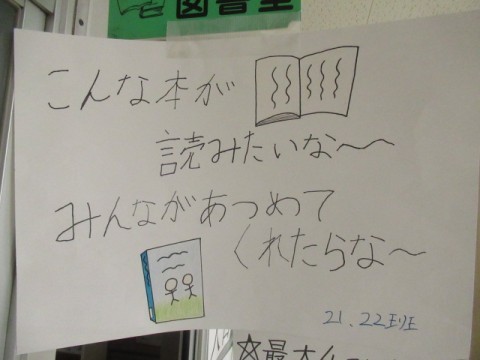 図書室
こんな本が
読みたいな～～
みんながあつめって
くれたらな～
21、22班